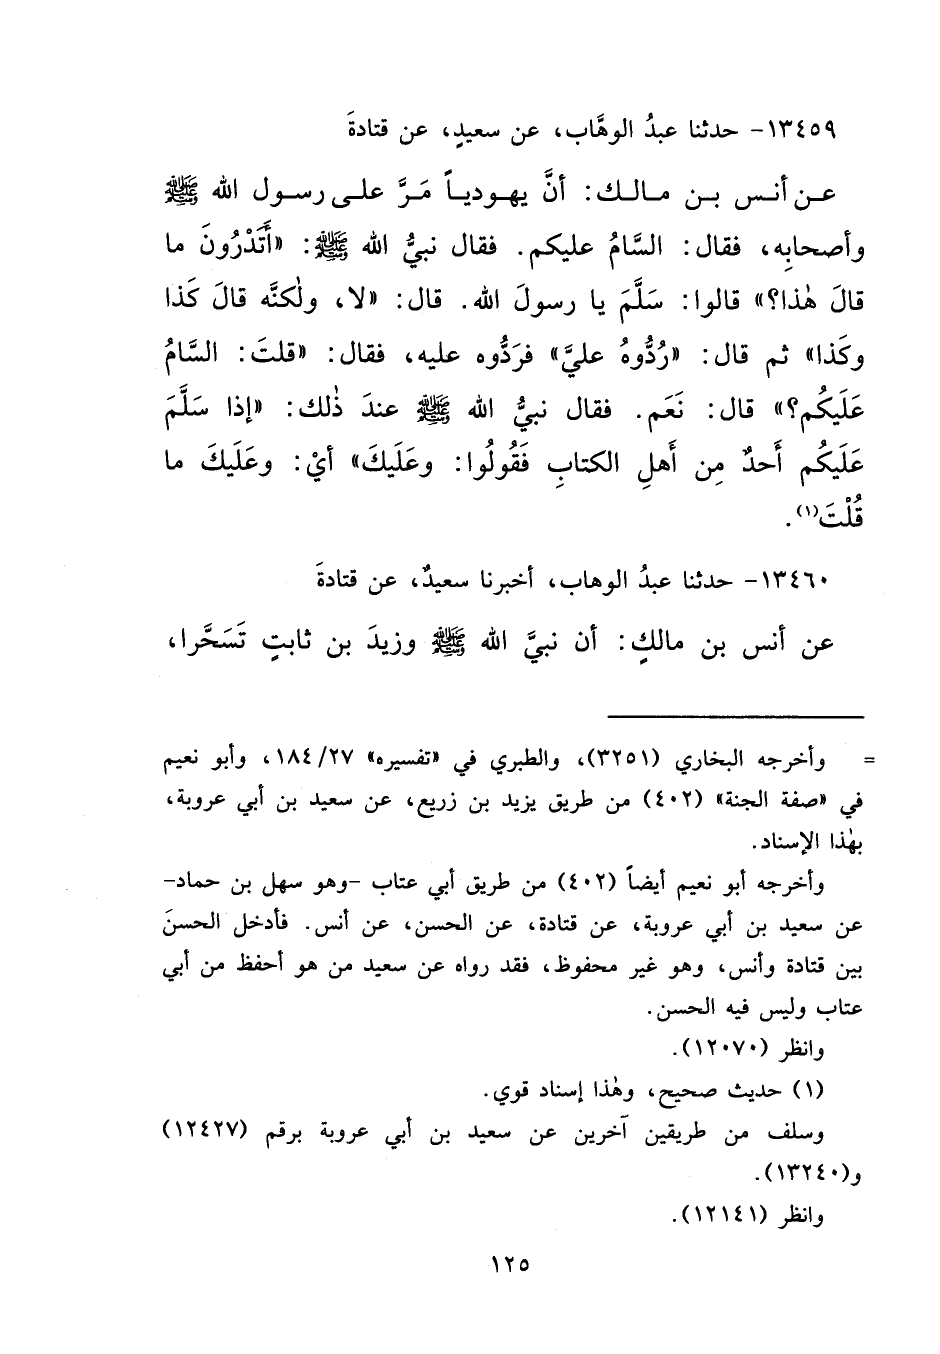 ١٣٤٥٩- حدثنا عبدُ الوهَّاب، عن سعيدٍ، عن قتادةَ
عن أنس بن مالك: أنَّ يهودياً مَرَّ على رسول الله ﷺ
وأصحابِه، فقال: السَّامُ عليكم. فقال نبيُّ الله ﷺ: «أَتَدْرُونَ ما
قالَ هٰذا؟» قالوا: سَلَّمَ يا رسولَ الله. قال: «لا، ولٰكنَّه قالَ كَذا
وكَذا» ثم قال: «رُدُّوهُ عليَّ» فرَدُّوه عليه، فقال: «قلتَ: السَّامُ
عَلَيكُم؟» قال: نَعَم. فقال نبيُّ الله ﷺ عندَ ذٰلك: «إذا سَلَّمَ
عَلَيكُم أَحدٌ مِن أَهلِ الكتابِ فَقُولُوا: وعَلَيكَ» أيْ: وعَلَيكَ ما
قُلْتَ(١).
١٣٤٦٠- حدثنا عبدُ الوهاب، أخبرنا سعيدٌ، عن قتادةَ
عن أنس بن مالكٍ: أن نبيَّ الله ﷺ وزيدَ بن ثابتٍ تَسَحَّرا،
= وأخرجه البخاري (٣٢٥١)، والطبري في «تفسيره» ١٨٤/٢٧، وأبو نعيم
في «صفة الجنة» (٤٠٢) من طريق يزيد بن زريع، عن سعيد بن أبي عروبة،
بهٰذا الإسناد.
وأخرجه أبو نعيم أيضاً (٤٠٢) من طريق أبي عتاب -وهو سهل بن حماد-
عن سعيد بن أبي عروبة، عن قتادة، عن الحسن، عن أنس. فأدخل الحسنَ
بين قتادة وأنس، وهو غير محفوظ، فقد رواه عن سعيد من هو أحفظ من أبي
عتاب وليس فيه الحسن.
وانظر (١٢٠٧٠).
(١) حديث صحيح، وهٰذا إسناد قوي.
وسلف من طريقين آخرين عن سعيد بن أبي عروبة برقم (١٢٤٢٧)
و(١٣٢٤٠).
وانظر (١٢١٤١).
١٢٥